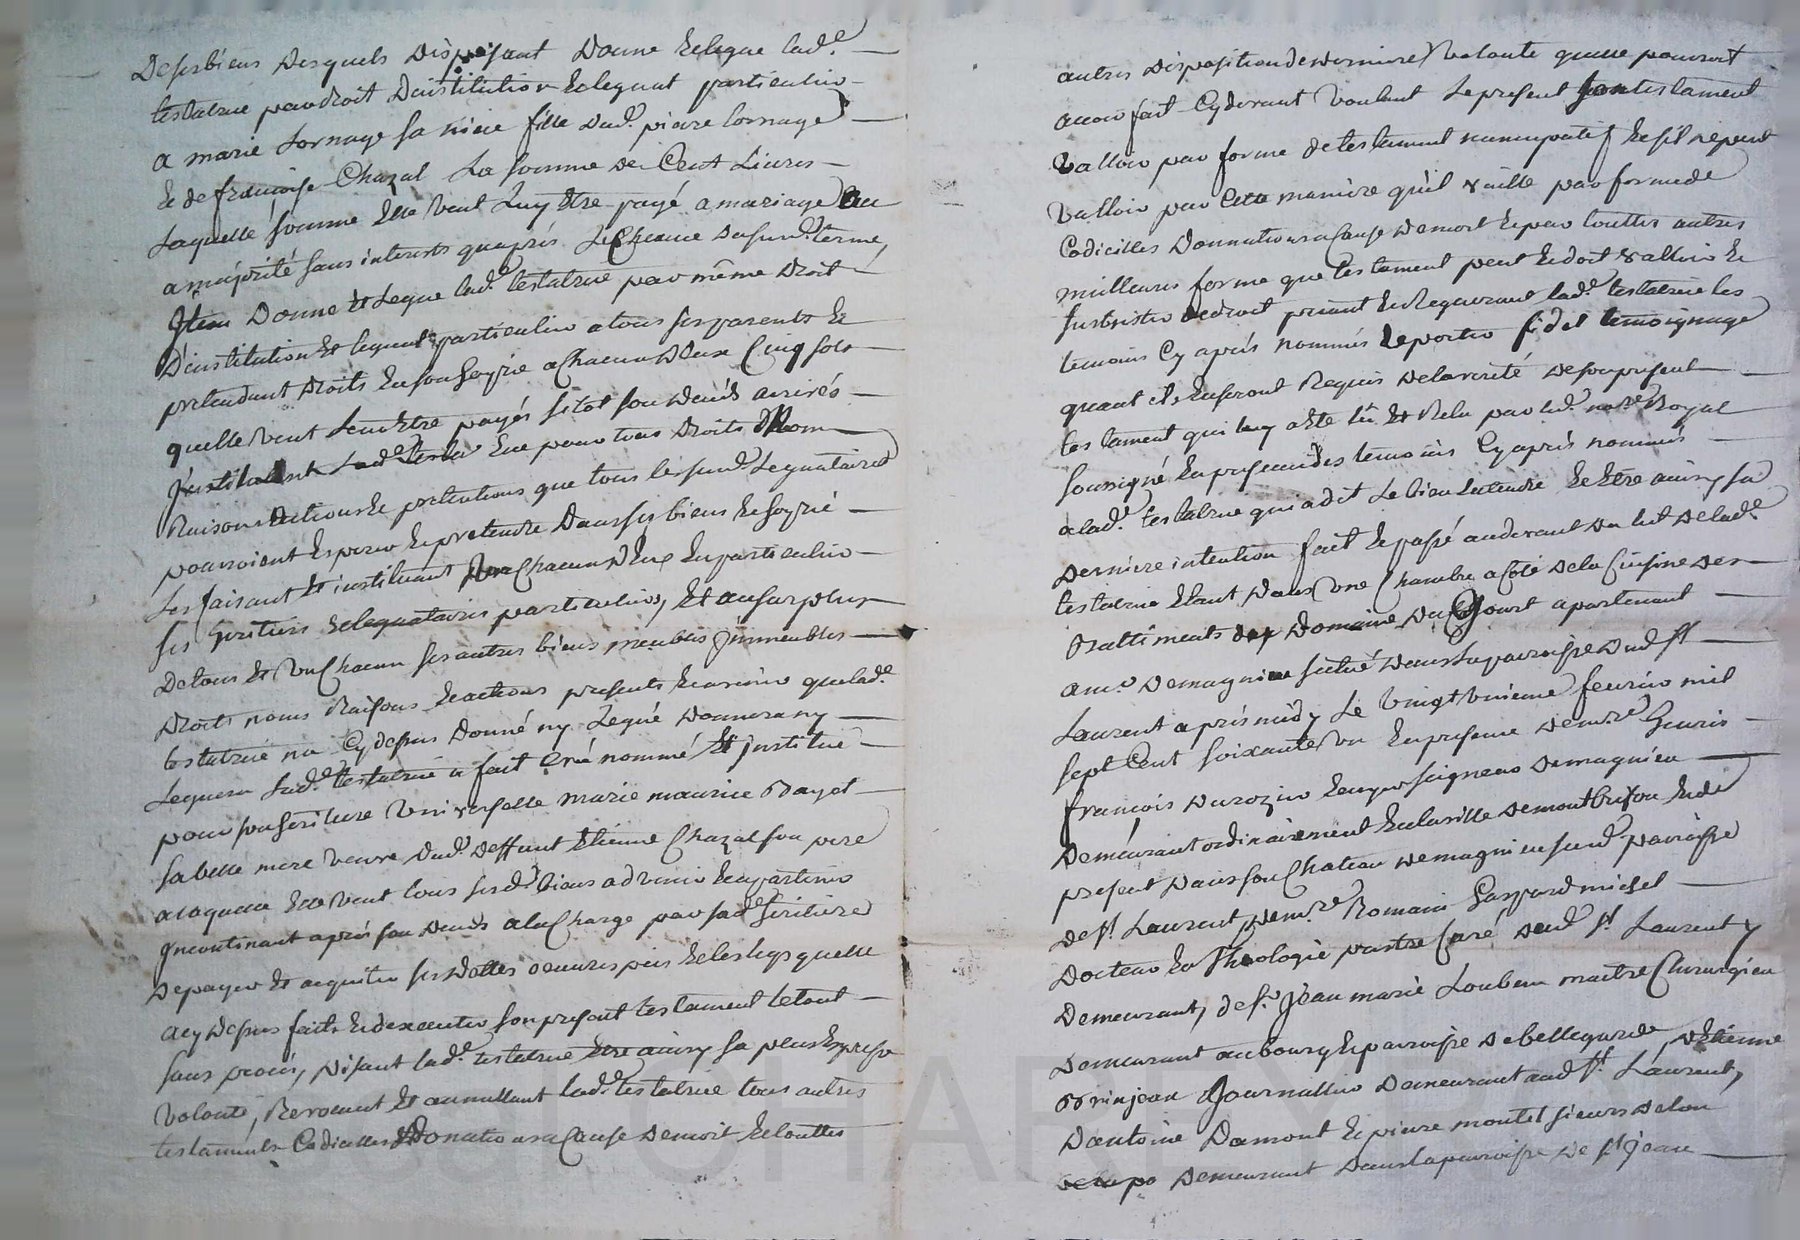 De ses biens desquels disposant donne et legue lad.e
testatrice par droit d'institution et legat particulier
a marie Lornage sa niece fille dud. pierre Lornage
et de françoise Chazal la somme de Cent Livres
laquelle somme elle veut luy etre payé a mariage ou
a majorité sans interests qu'aprés l'echeance dususd. terme,
Item donne et legue lad.e testatrice par même droit
d'institution et legat particulier a tous ses parents et
pretendant droits en son hoyrie a chacun d'eux Cinq sols
quelle veut leur etre payés sitot son deces arrivés
instituant lad.e testatrice pour tous droits Nom
Raisons actions et pretentions que tous les susd. Legataires
pourroient esperer et pretendre dans ses biens et hoyrie
Les faisant et instituant un chacun d'eux en particulier
ses heritiers et legataires particuliers, et au surplus
de tous et un chacun ses autres biens meubles immeubles
droits noms Raisons et actions presents et avenir que lad.e
testatrice n'a cy dessus donné ny Legué donnera ny
Leguera lad.e testatrice a fait créé nommé et institué
pour son heritiere universelle marie maurice Bayet
sa belle mere veuve dud. deffunt Etienne Chazal son pere
a laquelle elle veut tous sesd. biens advenir et apartenir
incontinant aprés son deces a la charge par sad.e heritiere
de payer et acquiter ses dettes oeuvres pies et les legs quelle
a cy dessus faits et d'executer son present testament le tout
sans procés, disant lad.e testatrice etre ainsy sa plus expresse
volonté, Revocant et annullant lad.e testatrice tous autres
testaments Codicilles Donations a cause de mort et touttes
autres disposition de derniere volonté quelle pourroit
avoir fait cy devant voulant le present son testament
valloir par forme de testament nuncupatif et s'il ne peut
valloir par cette maniere qu'il vaille par forme de
Codicilles donnations a cause de mort et par touttes autres
meilleures forme que testament peut et doit valloir et
subsister de droit priant et Requerant lad.e testatrice les
temoins cy aprés nommés de porter fidel temoignage
quant ils en seront Requis de la verité de son present
testament qui luy a eté lû et Relu par led. no.re Royal
soussigné en presence des temoins cy aprés nommés
a lad.e testatrice qui a dit le bien entendre et etre ainsy sa
derniere intention fait et passé au devant du lit de lad.e
testatrice etant dans une chambre a coté de la Cuisine des
Battiments du Domaine du apartenant
a m.r de magnieu situé dans la paroisse dud. st
Laurent aprés midy le vingt unieme fevrier mil
sept Cent soixante un en presence de m.re
françois durozier ecuyer seigneur de magnieu
demeurant ordinairement en la ville de montbrison et de
present dans son chateau de magnieu susd. paroisse
de st. Laurent, de m.re Romain Gaspard michel
docteur en theologie prestre Curé dud. st. Laurent y
demeurant, de s.r jean marie Loubeau maitre chirurgien
demeurant au bourg et paroisse de bellegarde, d'Etienne
Journallier demeurant aud. st. Laurent,
d'antoine Damont et pierre montel sieurs de lon
demeurant dans la paroisse de st jean